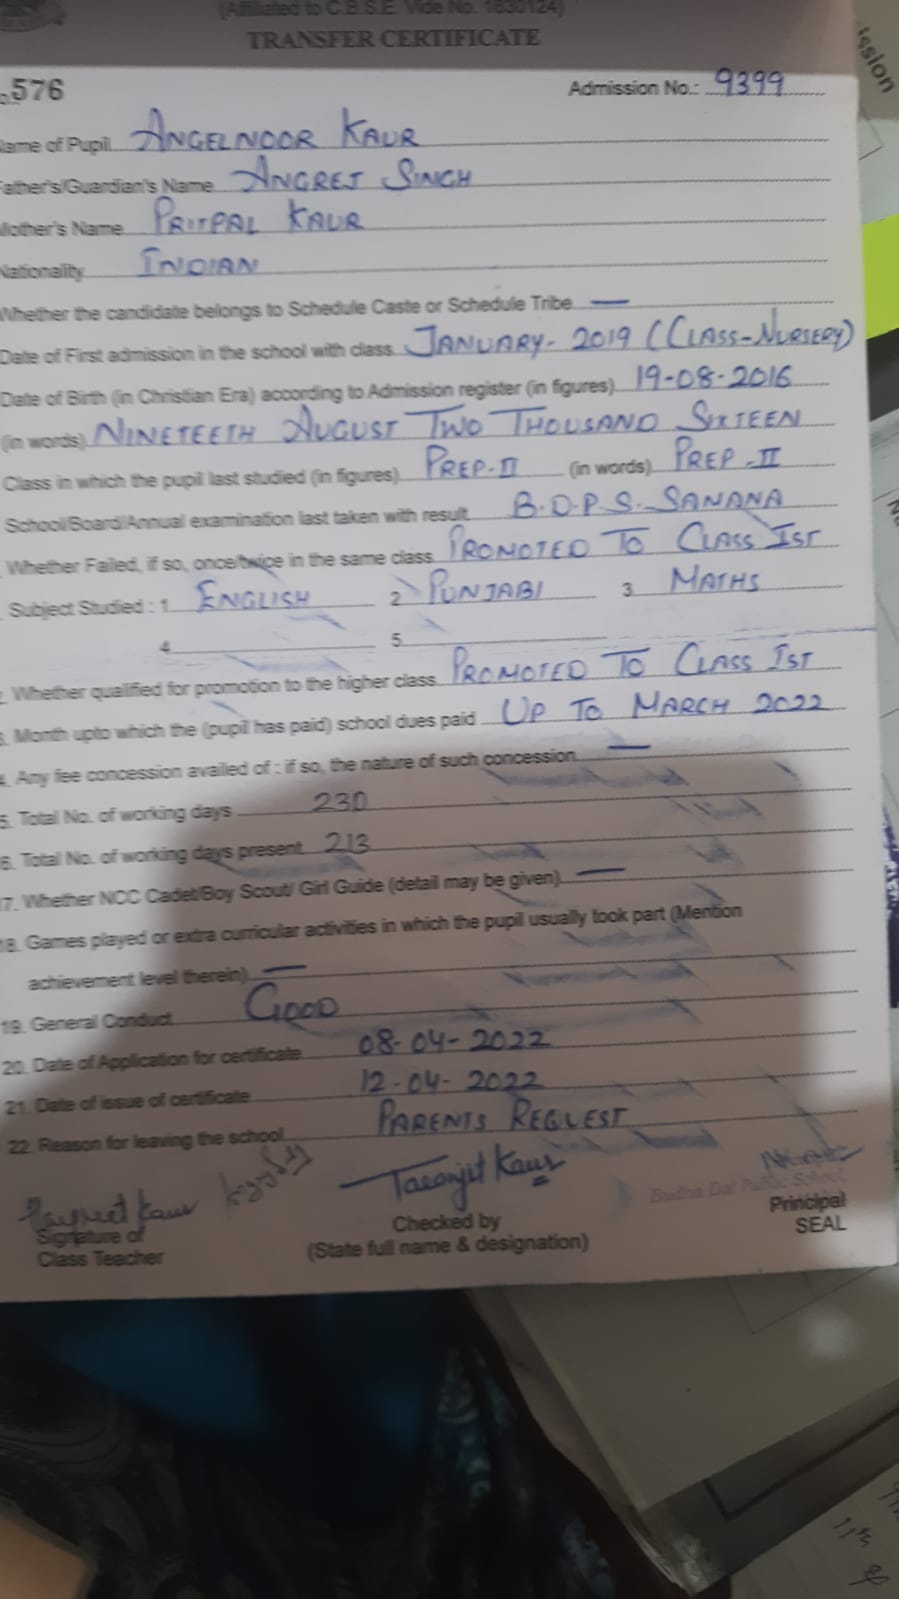 (Affiliated to C.B.S.E. Vide No. 1630124)
TRANSFER CERTIFICATE
o. 576 Admission No.: 9399
ame of Pupil ANGELNOOR KAUR
ather's/Guardian's Name ANGREJ SINGH
Mother's Name PRITPAL KAUR
Nationality INDIAN
Whether the candidate belongs to Schedule Caste or Schedule Tribe —
Date of First admission in the school with class JANUARY- 2019 (CLASS-NURSERY)
Date of Birth (in Christian Era) according to Admission register (in figures) 19-08-2016
(in words) NINETEETH AUGUST TWO THOUSAND SIXTEEN
Class in which the pupil last studied (in figures) PREP-II (in words) PREP-II
School/Board/Annual examination last taken with result B.D.P.S. SANANA
Whether Failed, if so, once/twice in the same class PROMOTED TO CLASS IST
Subject Studied : 1 ENGLISH 2 PUNJABI 3 MATHS
4 5
Whether qualified for promotion to the higher class PROMOTED TO CLASS IST
Month upto which the (pupil has paid) school dues paid UP TO MARCH 2022
Any fee concession availed of : if so, the nature of such concession —
5. Total No. of working days 230
6. Total No. of working days present 213
7. Whether NCC Cadet/Boy Scout/ Girl Guide (detail may be given) —
8. Games played or extra curricular activities in which the pupil usually took part (Mention
achievement level therein) —
19. General Conduct GOOD
20. Date of Application for certificate 08-04-2022
21. Date of issue of certificate 12-04-2022
22. Reason for leaving the school PARENTS REQUEST
Kaur Taranjit Kaur
Budha Dal Public School,
Signature of Checked by Principal
Class Teacher (State full name & designation) SEAL
ission